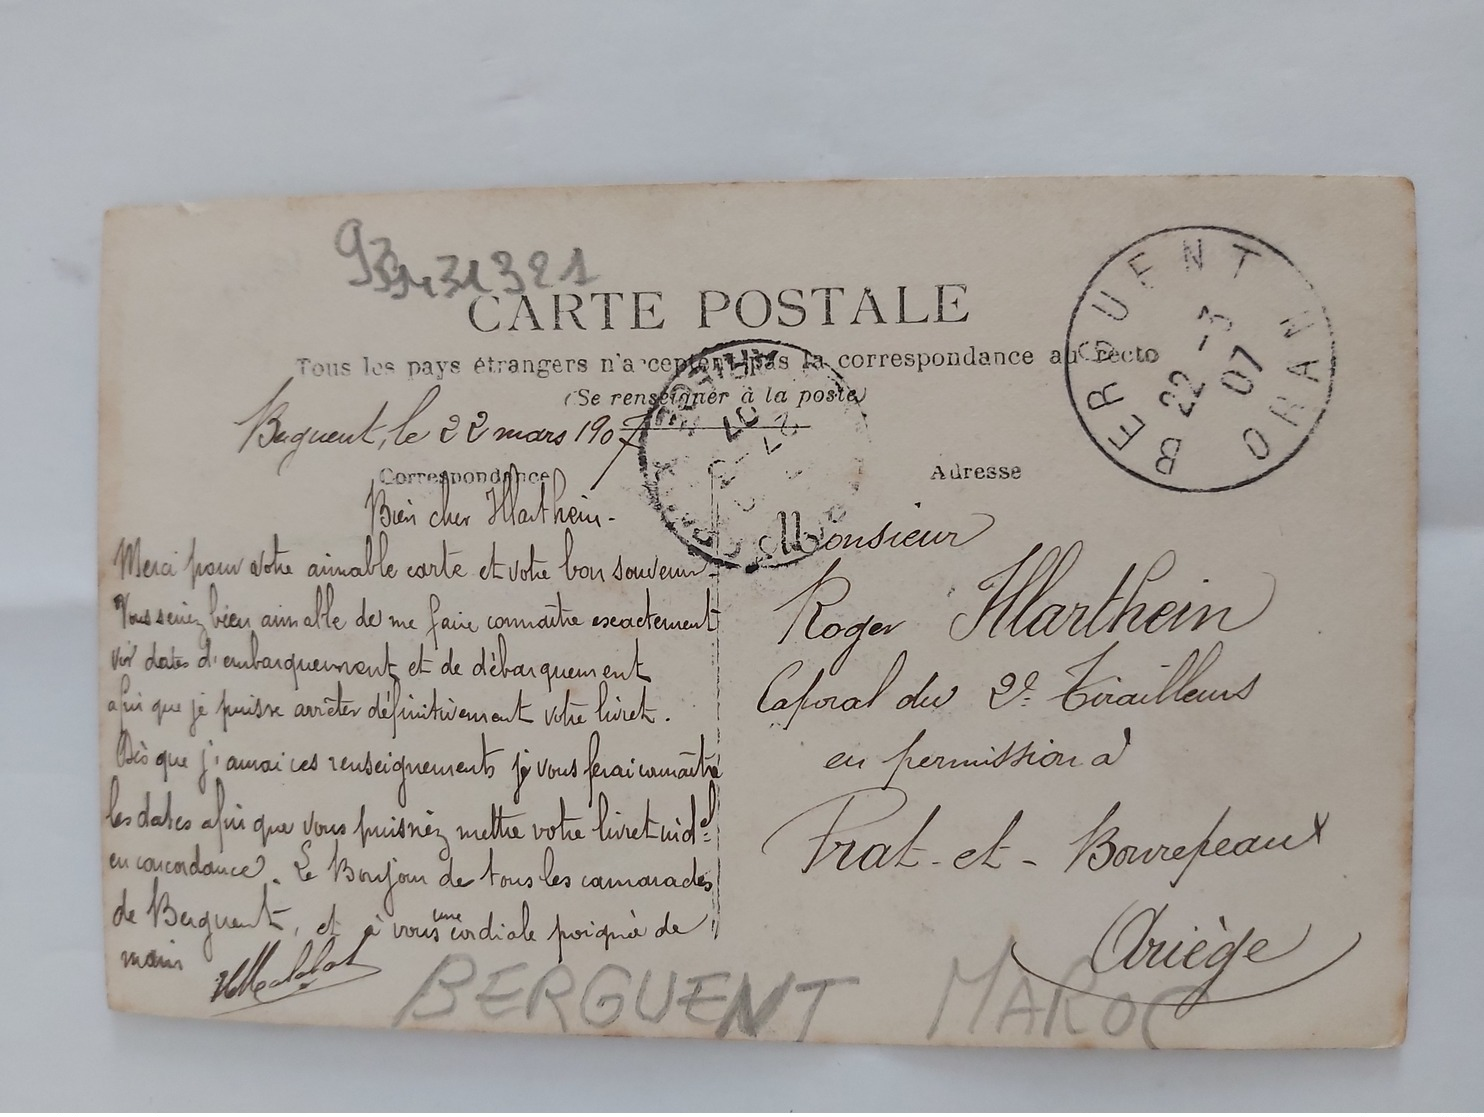 CARTE POSTALE
Tous les pays étrangers n'acceptent pas la correspondance au recto
(Se renseigner à la poste)
BERGUENT
ORAN
22 -3
07
Berguent, le 22 mars 1907
Correspondance
Bien cher Marthein -
Merci pour votre aimable carte et votre bon souvenir -
Vous seriez bien aimable de me faire connaître exactement
vos dates d'embarquement et de débarquement
afin que je puisse arrêter définitivement votre livret.
Dès que j'aurai ces renseignements je vous ferai connaître
les dates afin que vous puissiez mettre votre livret indel
en concordance. Le Bonjour de tous les camarades
de Berguent, et à vous une cordiale poignée de
main
Adresse
Monsieur
Roger Marthein
Caporal du 2e Tirailleurs
en permission à
Prat-et-Bonrepeaux
Ariège
BERGUENT MAROC